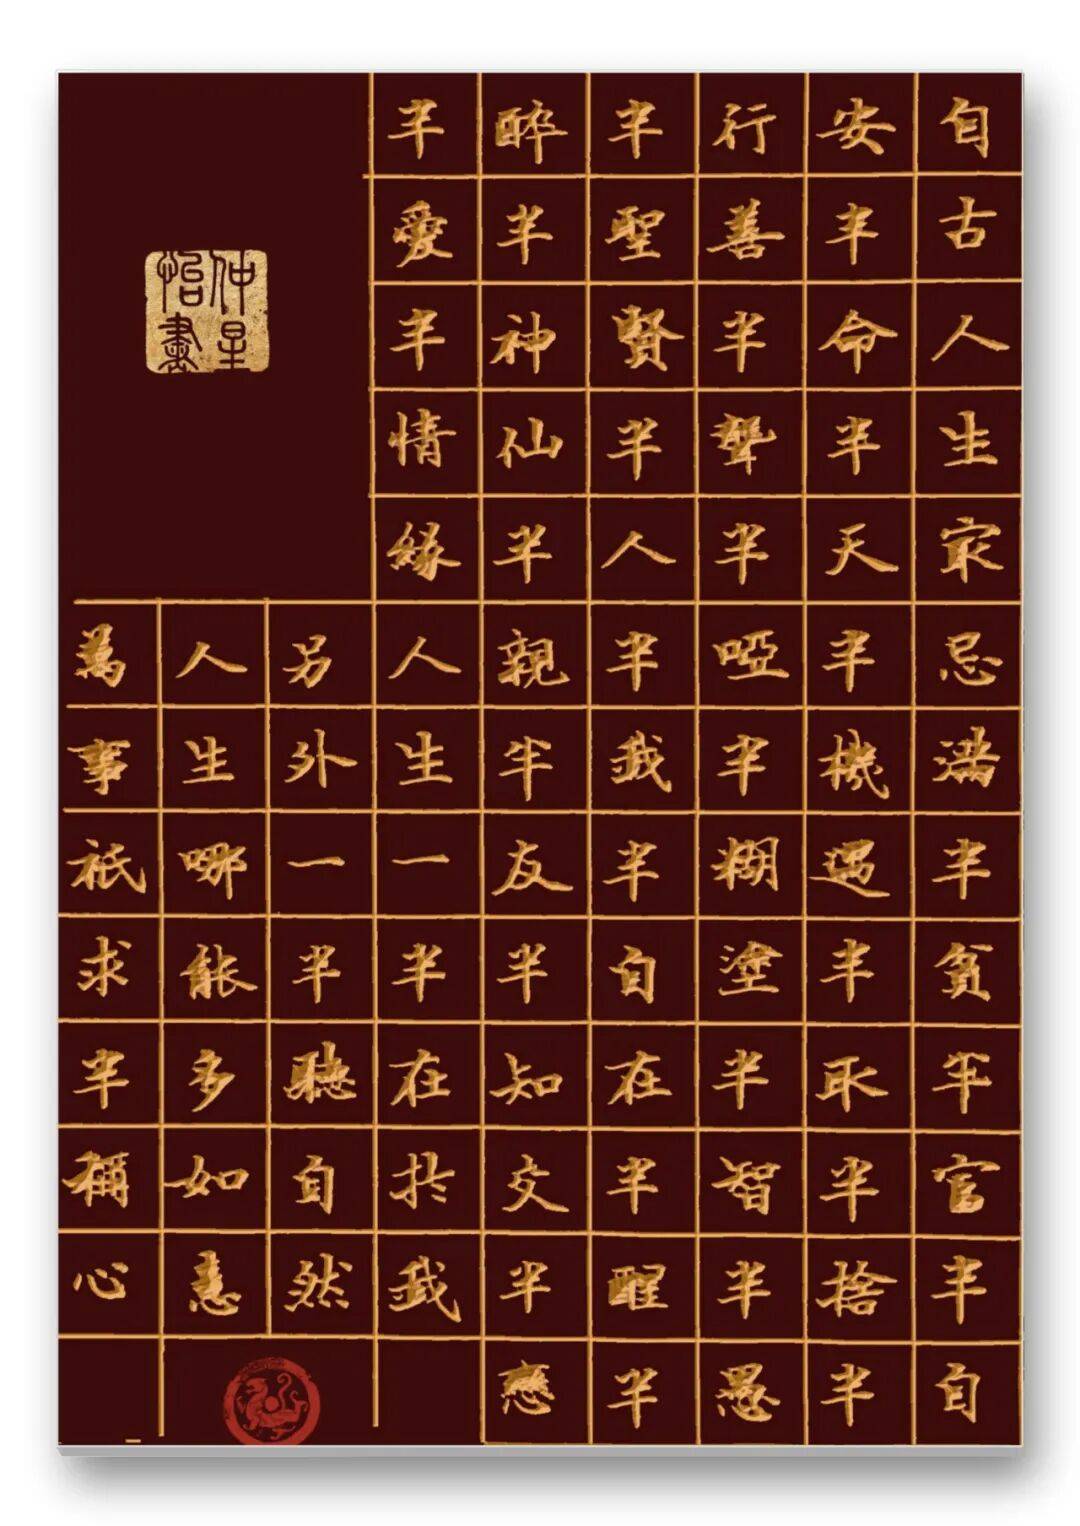 自古人生最忌滿半貧半官半自
安半命半天半機遇半取半捨半
行善半聾半啞半糊塗半智半愚
半聖賢半人半我半自在半醒半
醉半神仙半親半友半知交半戀
半愛半情緣人生一半在於我
另外一半聽自然
人生哪能多如意
萬事祇求半稱心